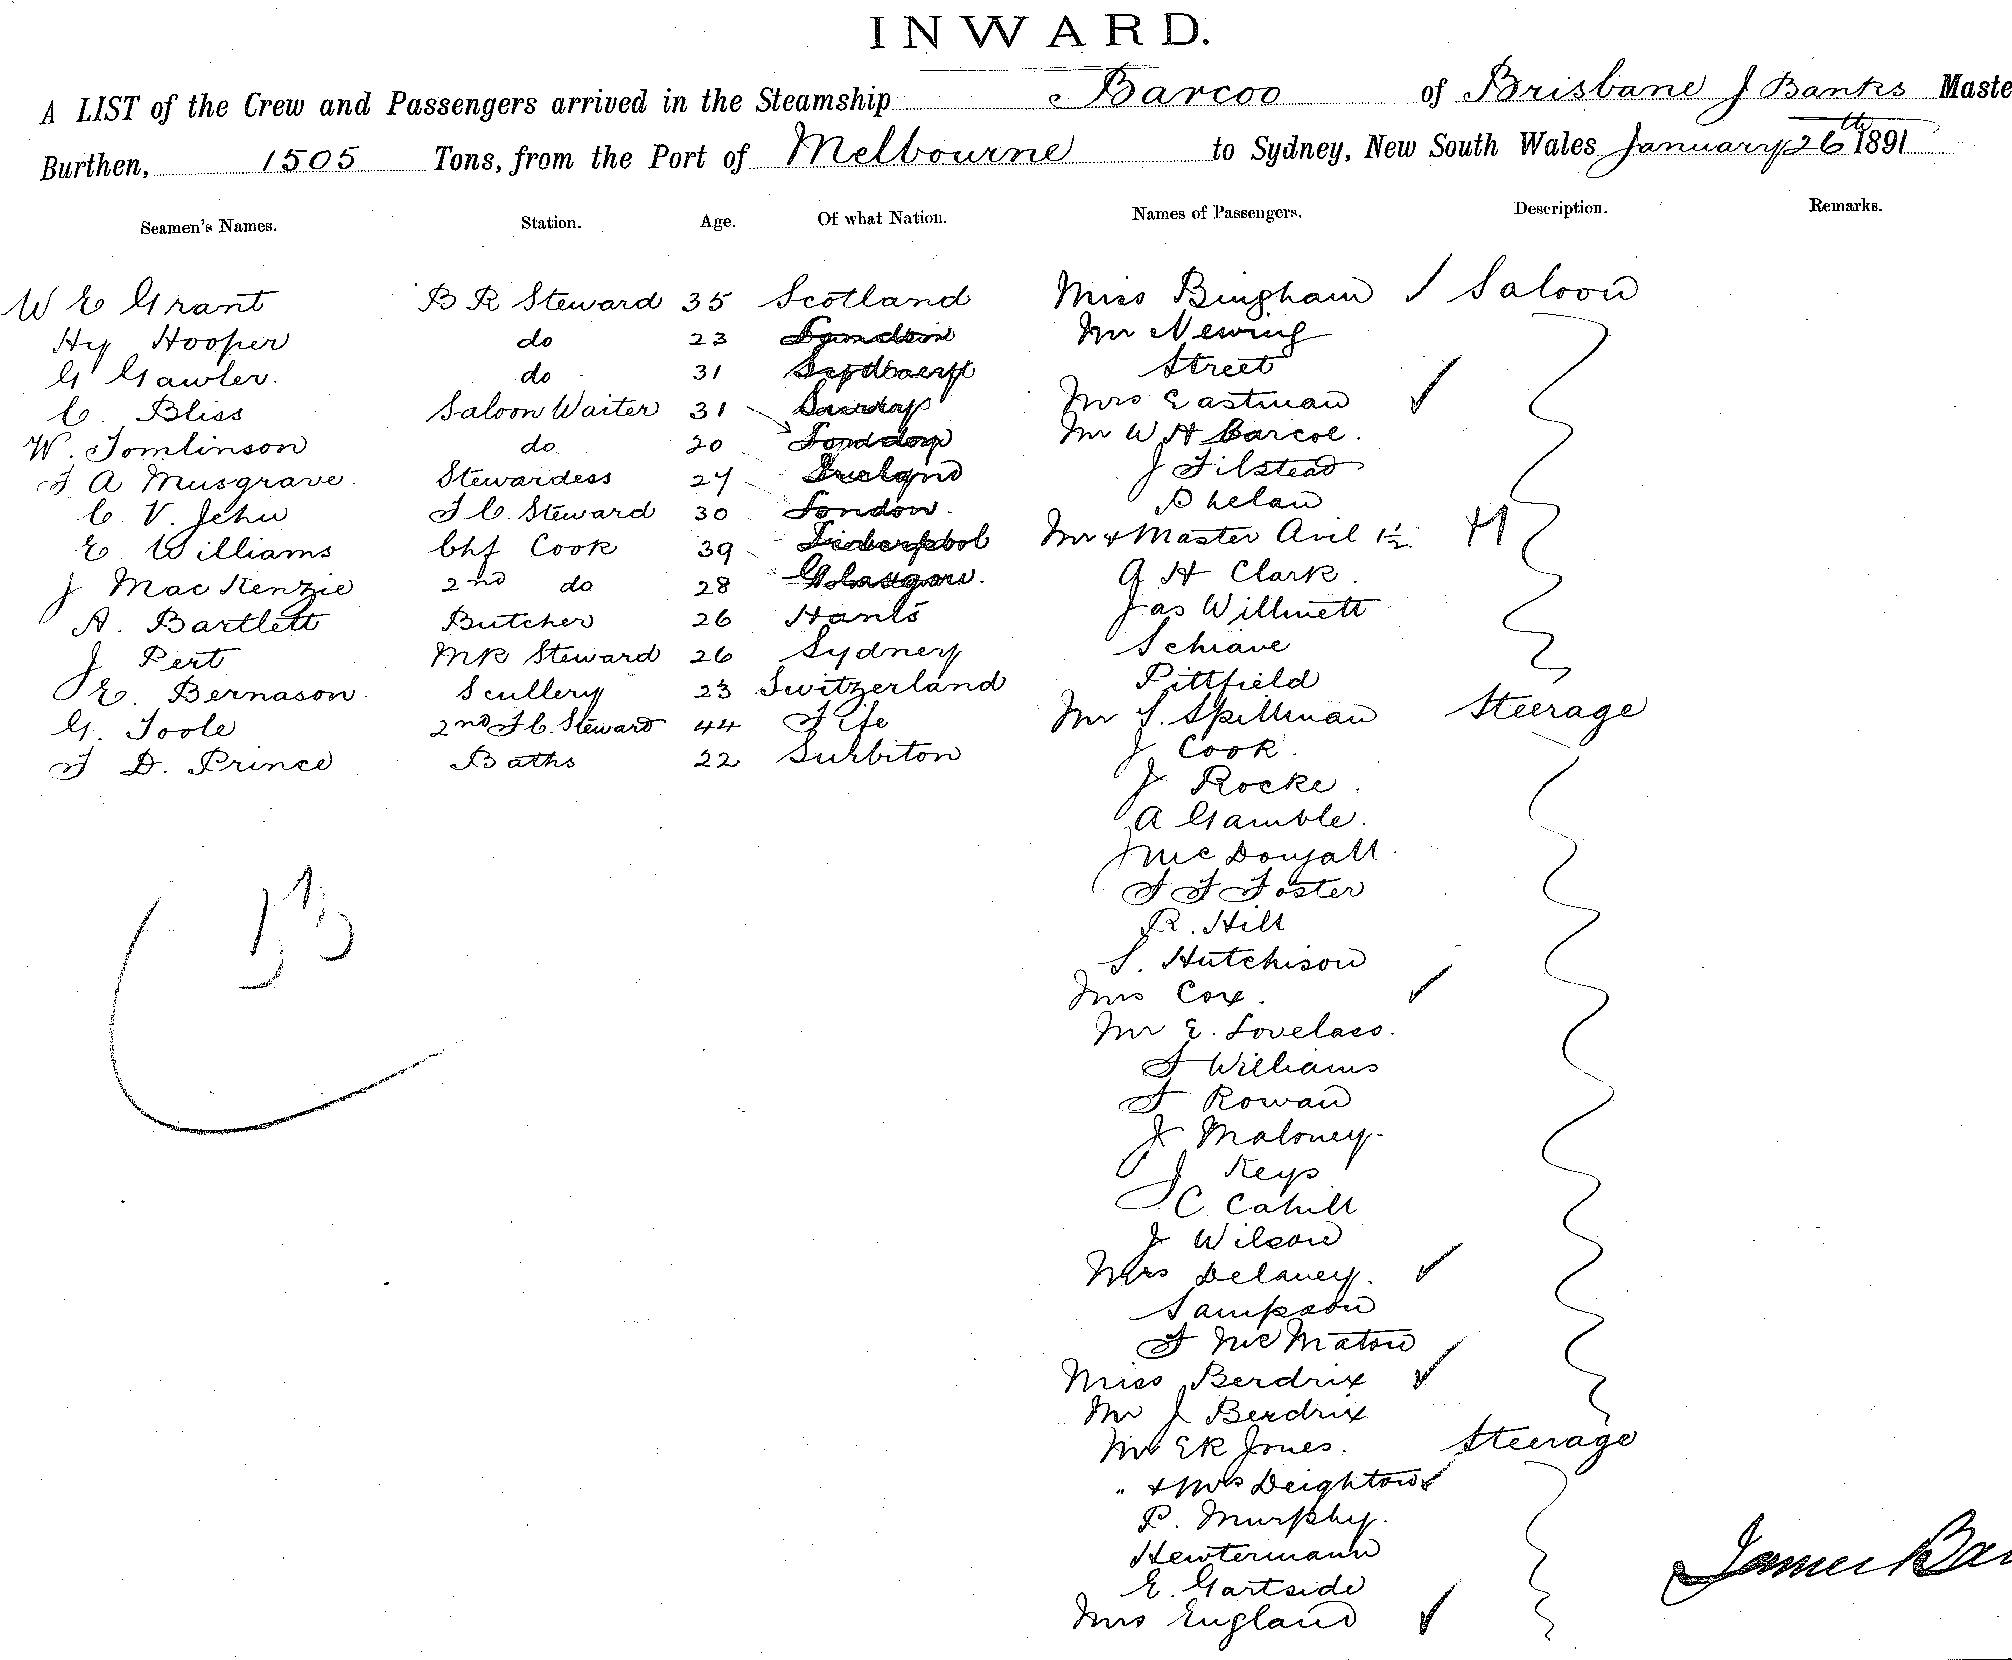 INWARD.
A LIST of the Crew and Passengers arrived in the Steamship Barcoo of Brisbane J Banks Maste
Burthen, 1505 Tons, from the Port of Melbourne to Sydney, New South Wales January 26th 1891
Seamen's Names. Station. Age. Of what Nation. Names of Passengers. Description. Remarks.
W E Grant B R Steward 35 Scotland
Hy Hooper do 23 London
G Gawler. do 31
C. Bliss Saloon Waiter 31
W. Tomlinson do 20 London
F A Musgrave. Stewardess 27 Ireland
C. V. Jehu F C. Steward 30 London.
E Williams Chf Cook 39 Liverpool
J MacKenzie 2nd do 28 Glasgow.
A. Bartlett Butcher 26 Hants
J Pert MR Steward 26 Sydney
E. Bernason. Scullery 23 Switzerland
G. Toole 2nd F C. Steward 44 Fife
F D. Prince Baths 22 Surbiton
Miss Bingham Saloon
Mr Newing
Street
Mrs Eastman
Mr W H
J Tilstead
Phelan
Mr & Master Avil 1½
G H Clark.
Jas Willmett
Schiave
Pittfield
Mr S. Spillman Steerage
J Cook.
J Rocke.
A Gamble.
J McDougall.
F F Foster
R. Hill
S. Hutchison
Mrs Cox.
Mr E. Lovelass.
F Williams
F Rowan
J Maloney.
J Keys
C Cahill
J Wilson
Mrs Delaney.
Sampson
F McMaton
Miss Berdrix
Mr J Berdrix
Mr E R Jones. Steerage
" & Mrs Deighton
P. Murphy.
Hewtermann
E. Gartside
Mrs England
James Ban